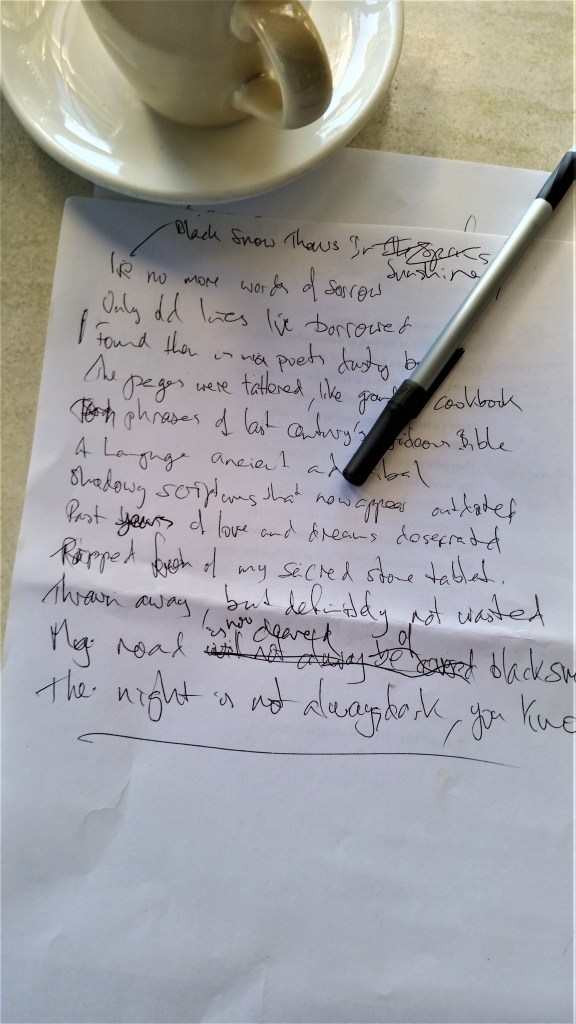 Black Snow Thaws In
Sunshine
no more words of sorrow
Only old lines borrowed
Found them in poets dusty
The pages were tattered, like cookbook
phrases of last century's Bible
A Language ancient and
Shadowy that now appear outdated
Past years of love and dreams desecrated
Ripped of my sacred stone tablet.
Thrown away, but definitely not wasted
is now cleared of
My road will not always be blacksn
The night is not always dark, you Kno